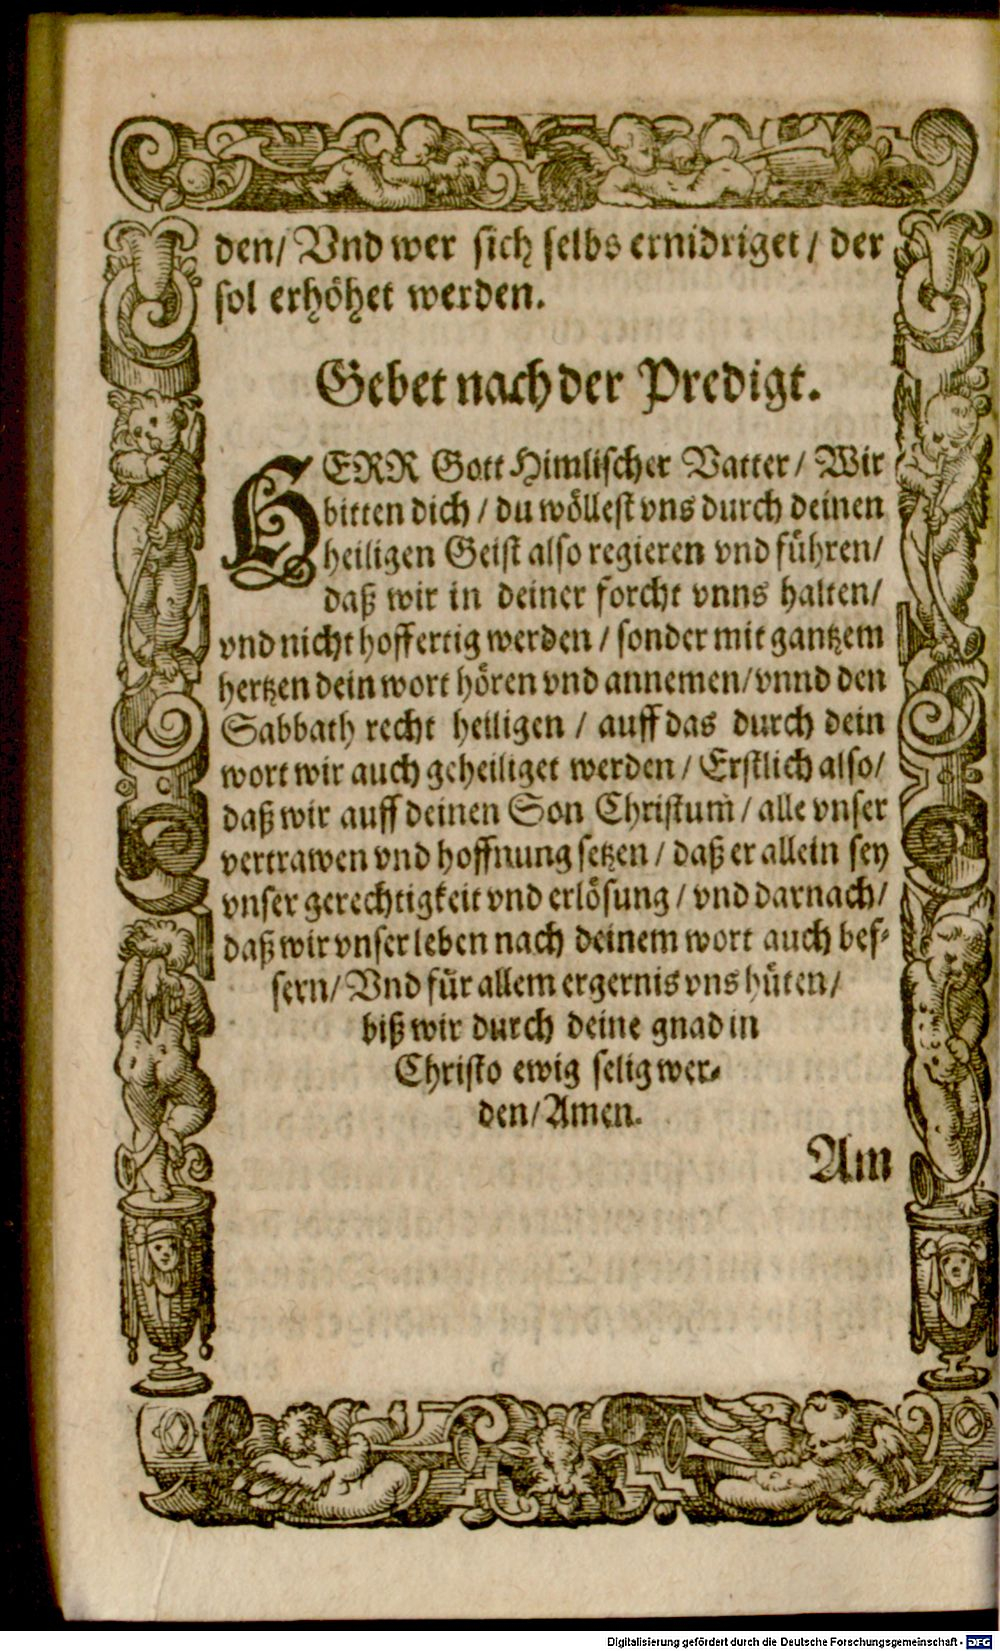 den/ Vnd wer sich selbs ernidriget/ der
sol erhöhet werden.
Gebet nach der Predigt.
HERR Gott Himlischer Vatter/ Wir
bitten dich/ du wöllest vns durch deinen
heiligen Geist also regieren vnd führen/
daß wir in deiner forcht vnns halten/
vnd nicht hoffertig werden/ sonder mit gantzem
hertzen dein wort hören vnd annemen/ vnnd den
Sabbath recht heiligen/ auff das durch dein
wort wir auch geheiliget werden/ Erstlich also/
daß wir auff deinen Son Christum/ alle vnser
vertrawen vnd hoffnung setzen/ daß er allein sey
vnser gerechtigkeit vnd erlösung/ vnd darnach/
daß wir vnser leben nach deinem wort auch bes-
sern/ Vnd für allem ergernis vns hüten/
biß wir durch deine gnad in
Christo ewig selig wer-
den/ Amen.
Am
Digitalisierung gefördert durch die Deutsche Forschungsgemeinschaft - DFG